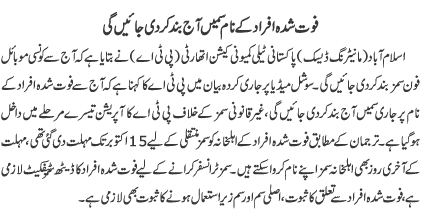 فوت شدہ افراد کے نام سمیں آج بند کر دی جائیں گی
اسلام آباد (مانیٹرنگ ڈیسک) پاکستانی ٹیلی کمیونی کیشن اتھارٹی (پی ٹی اے) نے بتایا ہے کہ آج سے کونسی موبائل
فون سمز بند کر دی جائیں گی۔ سوشل میڈیا پر جاری کردہ بیان میں پی ٹی اے کا کہنا ہے کہ آج سے فوت شدہ افراد کے
نام پر جاری سمیں بند کر دی جائیں گی، غیر قانونی سمز کے خلاف پی ٹی اے کا آپریشن تیسرے مرحلے میں داخل
ہو گیا ہے۔ ترجمان کے مطابق فوت شدہ افراد کے اہلخانہ کو سمز منتقلی کے لیے 15 اکتوبر تک مہلت دی گئی تھی، مہلت
کے آخری روز بھی اہلخانہ سمز اپنے نام کروا سکتے ہیں۔ سمز ٹرانسفر کرانے کے لیے فوت شدہ افراد کا ڈیتھ سرٹیفکیٹ لازمی
ہے، فوت شدہ افراد سے تعلق کا ثبوت، اصلی سم اور سم زیر استعمال ہونے کا ثبوت بھی لازمی ہے۔